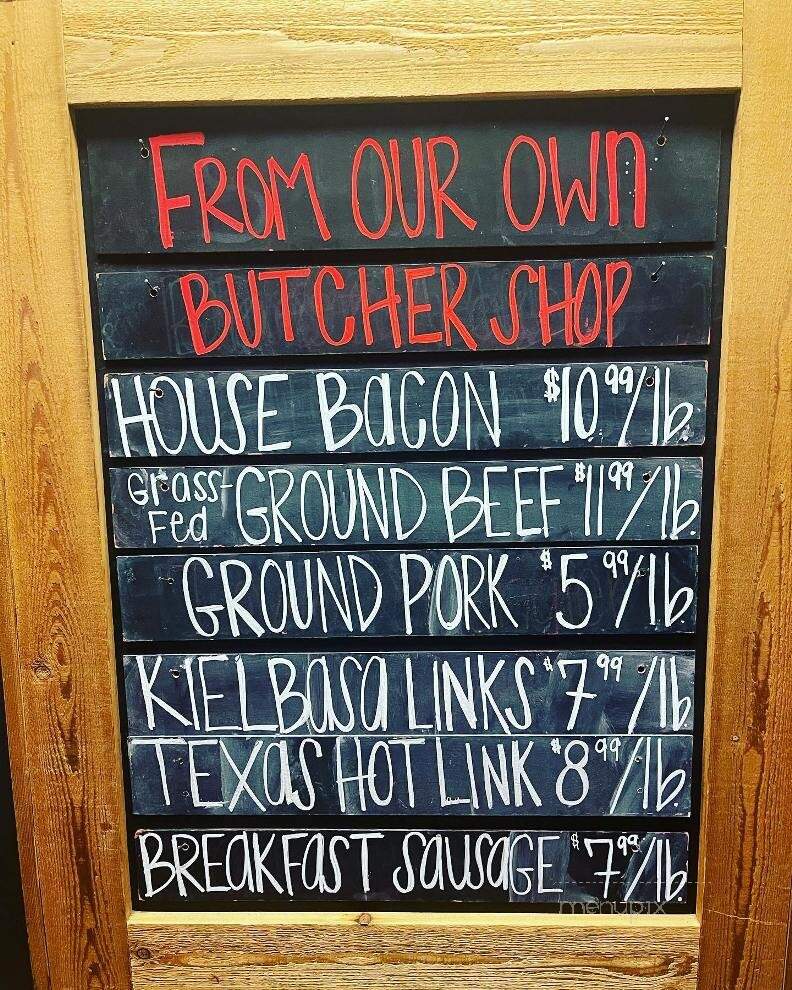 FROM OUR OWN
BUTCHER SHOP
HOUSE BACON $10.99/lb.
Grass-Fed GROUND BEEF $11.99/lb.
GROUND PORK $5.99/lb
KIELBASA LINKS $7.99/lb
TEXAS HOT LINK $8.99/lb.
BREAKFAST SAUSAGE $7.99/lb.
menupix